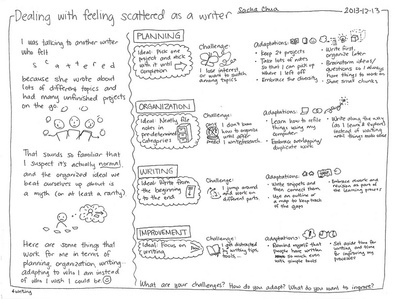 Dealing with feeling scattered as a writer
Sacha Chua
2013-12-13
I was talking to another writer
who felt
scattered
because she wrote about
lots of different topics and
had many unfinished projects
on the go.
That sounds so familiar that
I suspect it's actually normal,
and the organized ideal we
beat ourselves up about is
a myth (or at least a rarity)
Here are some things that
work for me in terms of
planning, organization, writing...
adapting to who I am instead
of who I wish I could be
#writing
PLANNING
Ideal: Pick one
project and stick
with it until
completion
Challenge:
I lose interest
or want to switch
among topics
Adaptations:
Keep 2+ projects
Take lots of notes
so that I can pick up
where I left off
Embrace the diversity
Write first,
organize later
Brainstorm ideas/
questions so I always
have things to work on
Share small chunks
ORGANIZATION
Ideal: Neatly file
notes in
predetermined
categories
Challenge:
I don't know
how to organize
until after
I write/research
Adaptations:
Learn how to refile
things using my
computer.
Embrace overlapping/
duplicate work
Write along the way
(as I learn & explore)
instead of waiting
until things make sense
WRITING
Ideal: Write from
the beginning
to the end
Challenge:
I jump around
and work on
different parts
Adaptations:
Write snippets and
then connect them.
Use an outline or
a map to keep track
of the gaps
Embrace rework and
revision as part of
the learning process
IMPROVEMENT
Ideal: Focus on
writing
Challenge:
I get distracted
by writing tips,
tools...
Adaptations:
Remind myself that
people have written
so much even
with simple tools
Set aside time for
writing and some
for improving
my process
What are your challenges? How do you adapt? What do you want to improve?